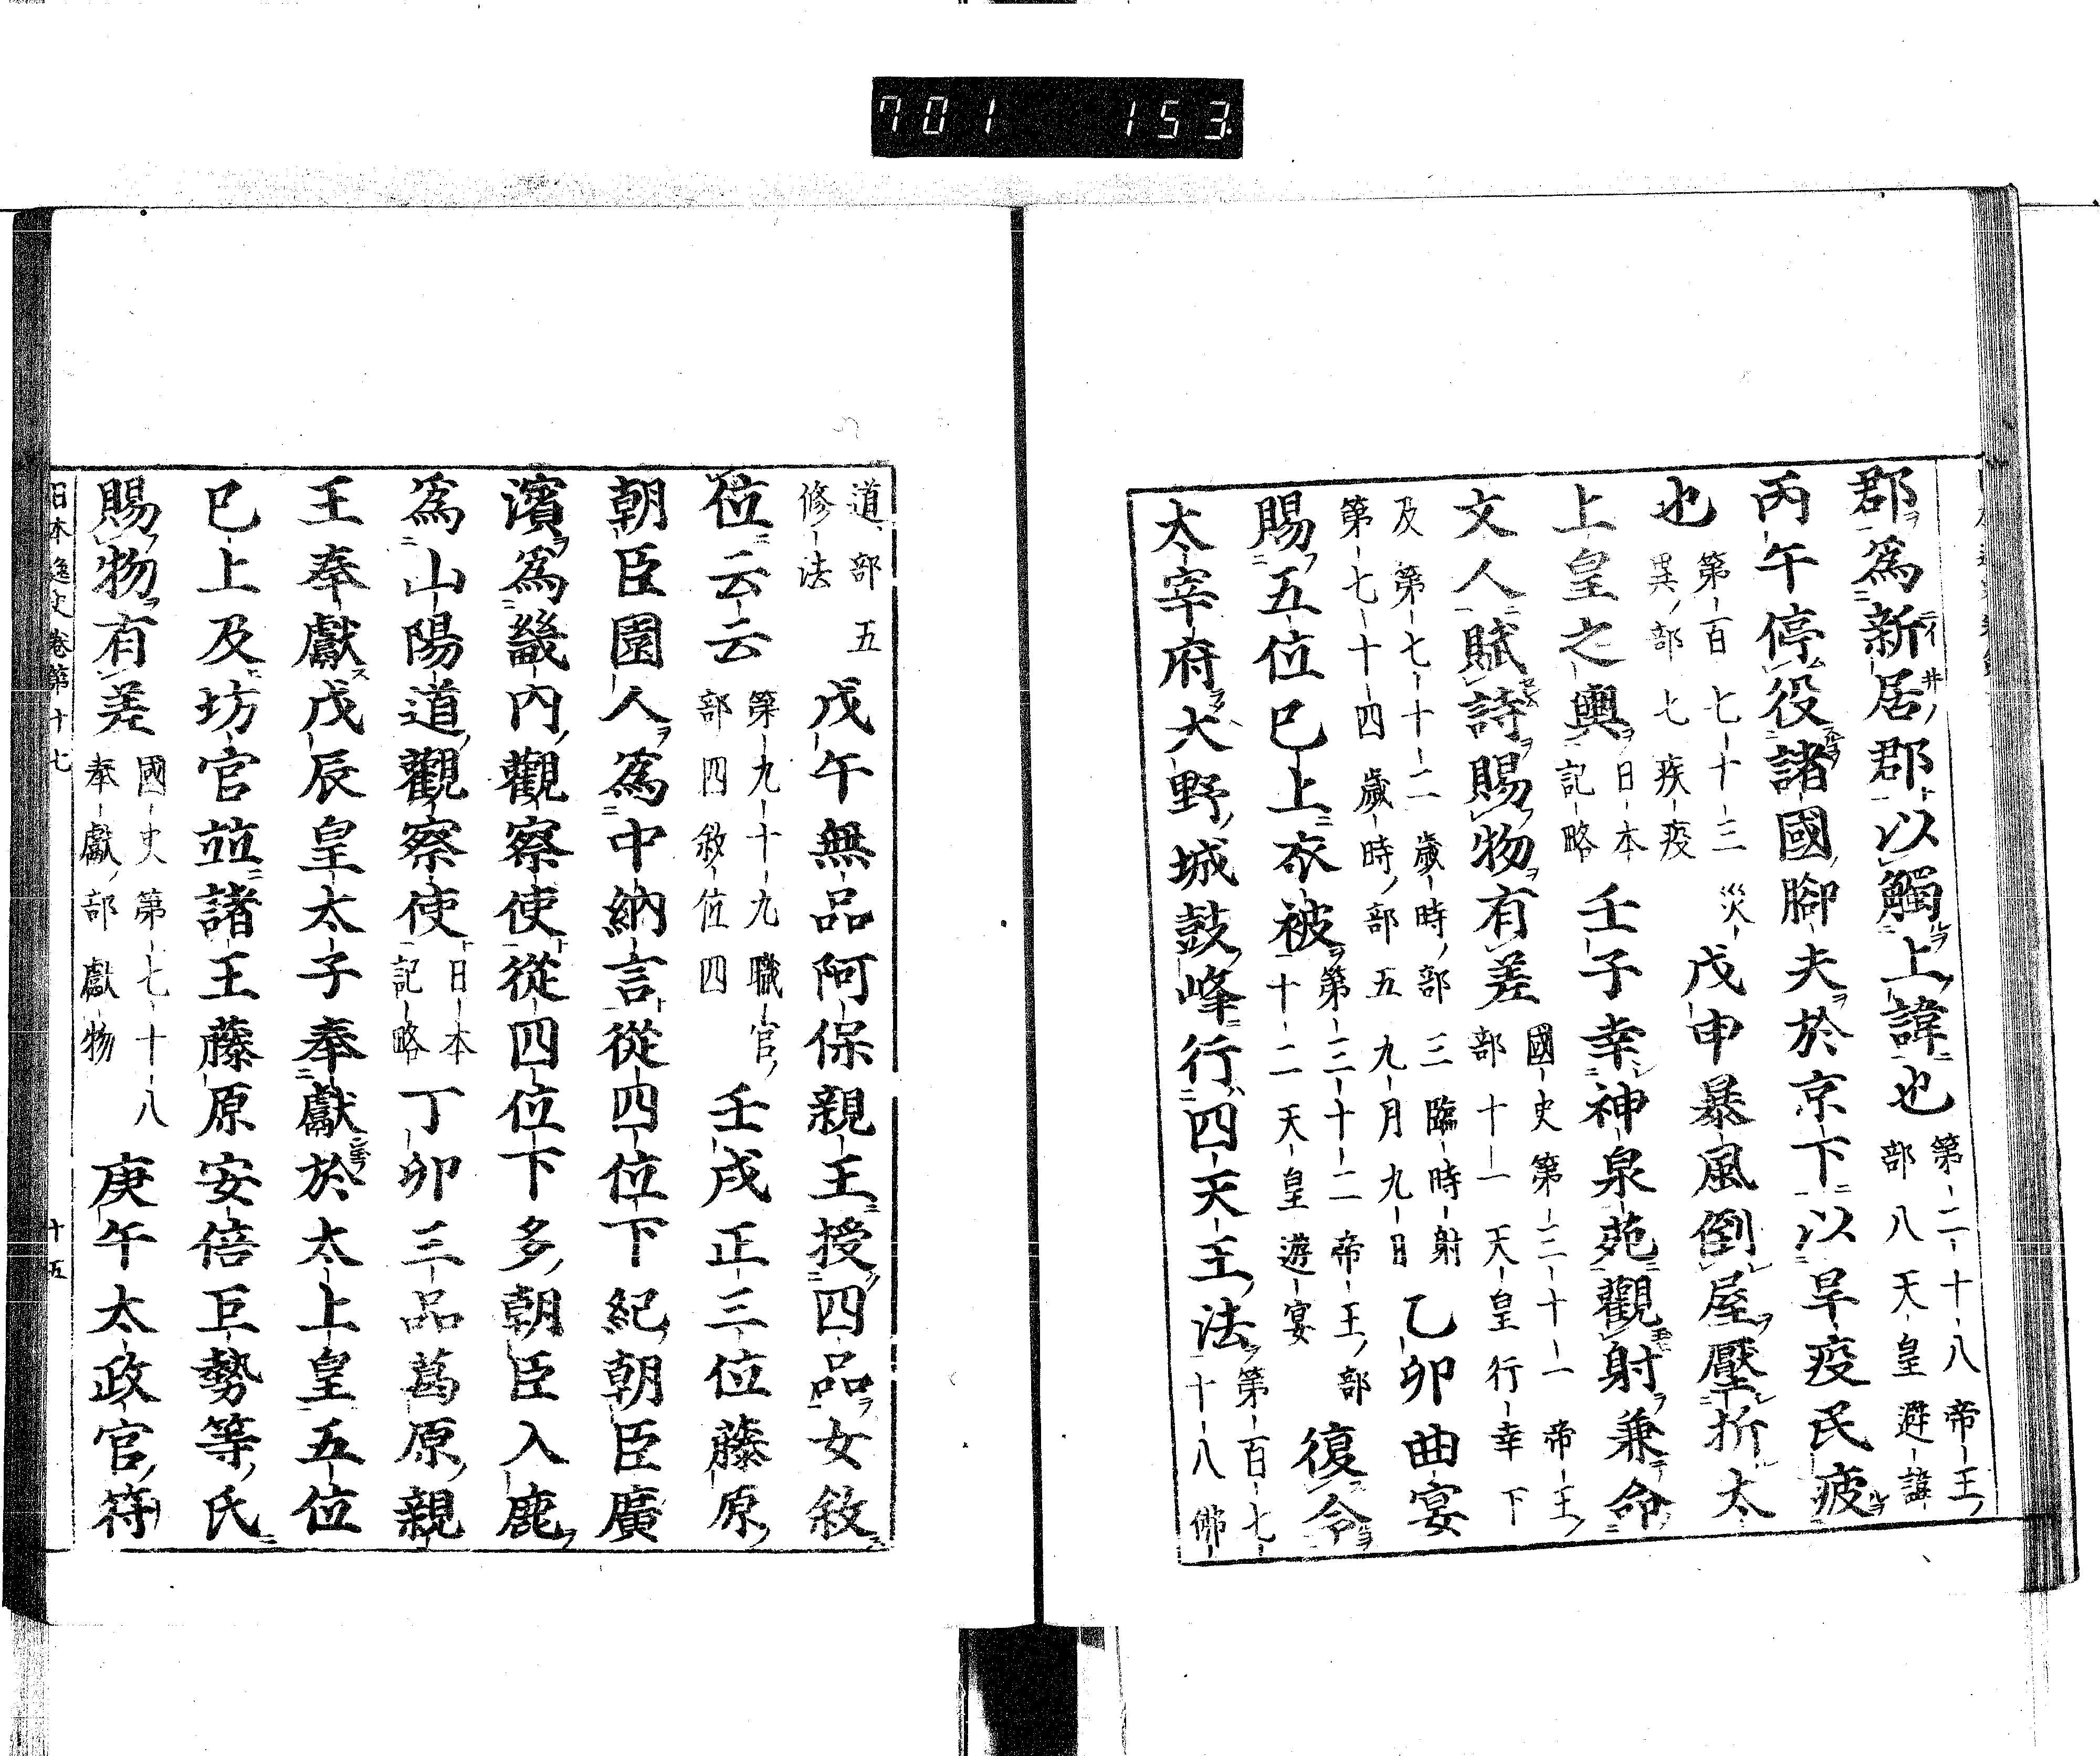 701 153
郡爲新居郡以觸上諱也 第二十八帝王部八天皇避諱
丙午停役諸國腳夫於京下以旱疫民疲
也 第百七十三災異部七疾疫 戊申暴風倒屋壓折太
上皇之輿 日本記略 壬子幸神泉苑觀射兼命
文人賦詩賜物有差 國史第三十一帝王部十一天皇行幸下
及第七十二歲時部三臨時射第七十四歲時部五九月九日 乙卯曲宴
賜五位巳上衣被 第三十二帝王部十二天皇遊宴 復令
太宰府大野城鼓峰行四天王法 第百七十八佛
道部五修法 戊午無品阿保親王授四品女敘
位云云 第九十九職官部四敘位四 壬戌正三位藤原
朝臣園人爲中納言從四位下紀朝臣廣
濱爲畿内觀察使從四位下多朝臣入鹿
爲山陽道觀察使 日本記略 丁卯三品葛原親
王奉獻戊辰皇太子奉獻於太上皇五位
巳上及坊官並諸王藤原安倍巨勢等氏
賜物有差 國史第七十八奉獻部獻物 庚午太政官符
日本逸史卷第十七 十五